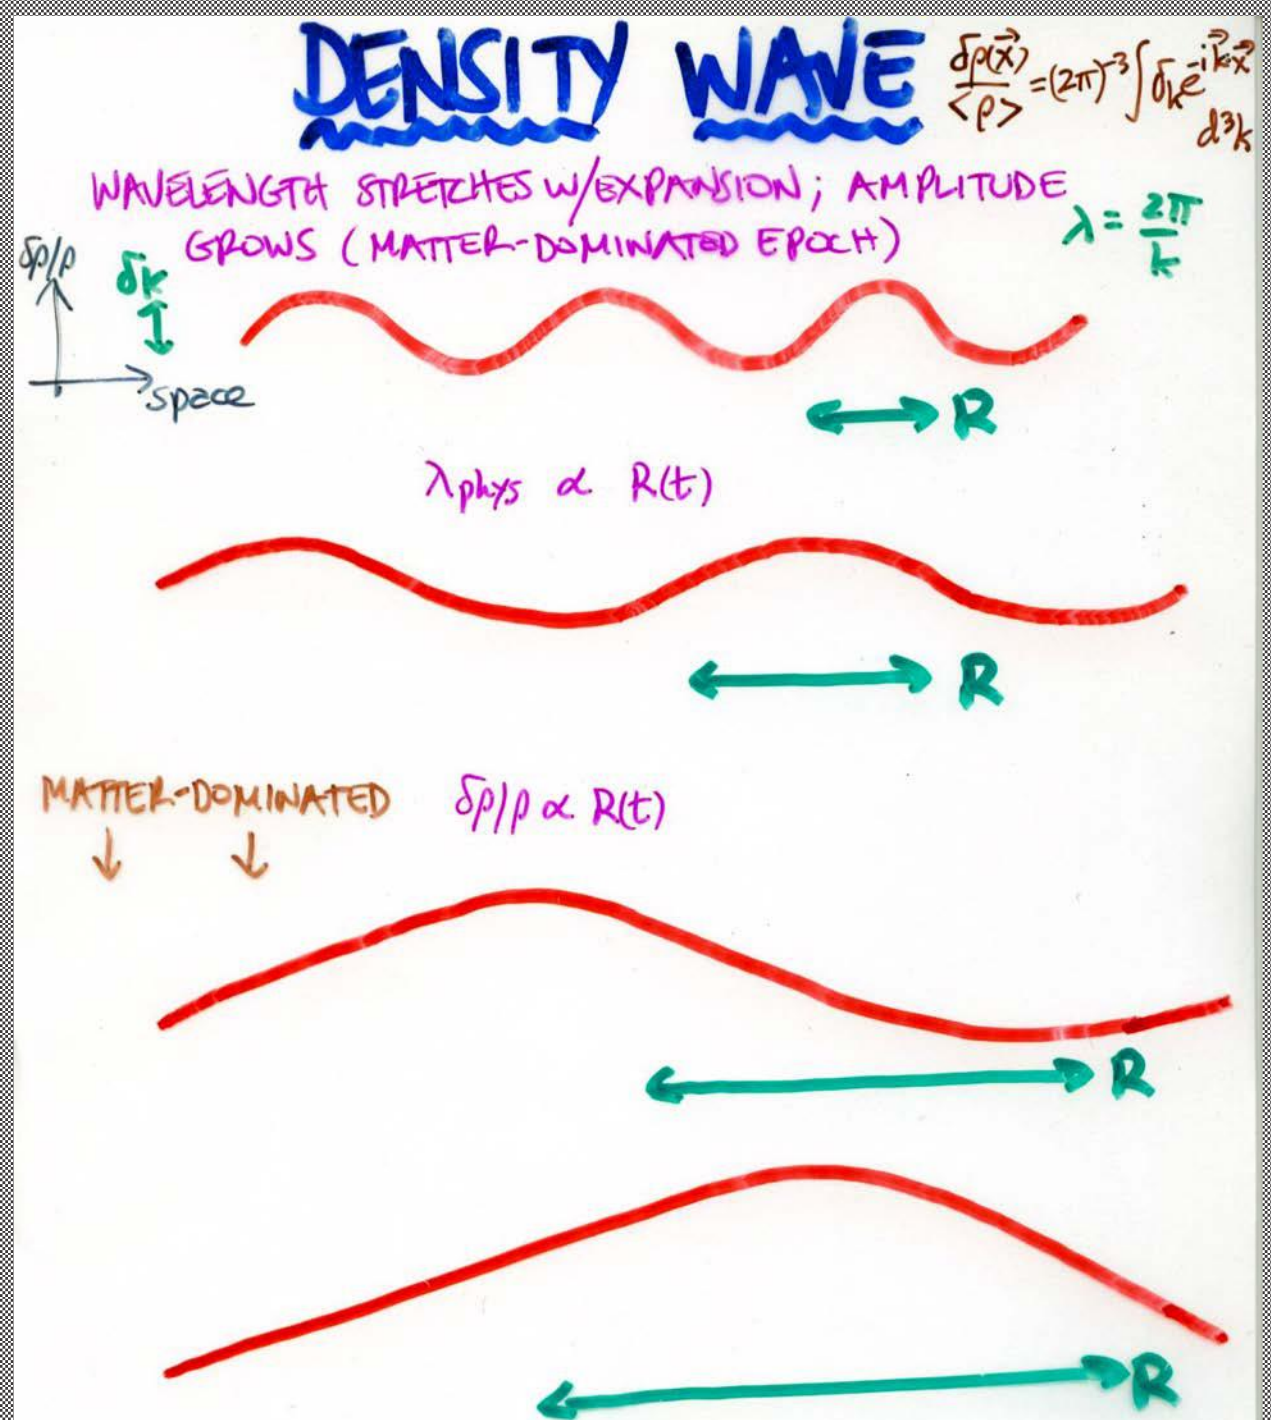 DENSITY WAVE
δρ(x⃗)/<ρ> = (2π)⁻³ ∫ δₖ e^(-i k⃗·x⃗) d³k
WAVELENGTH STRETCHES W/EXPANSION; AMPLITUDE
GROWS (MATTER-DOMINATED EPOCH)
λ = 2π/k
δρ/ρ
δk
space
R
λphys ∝ R(t)
R
MATTER-DOMINATED
δρ/ρ ∝ R(t)
R
R